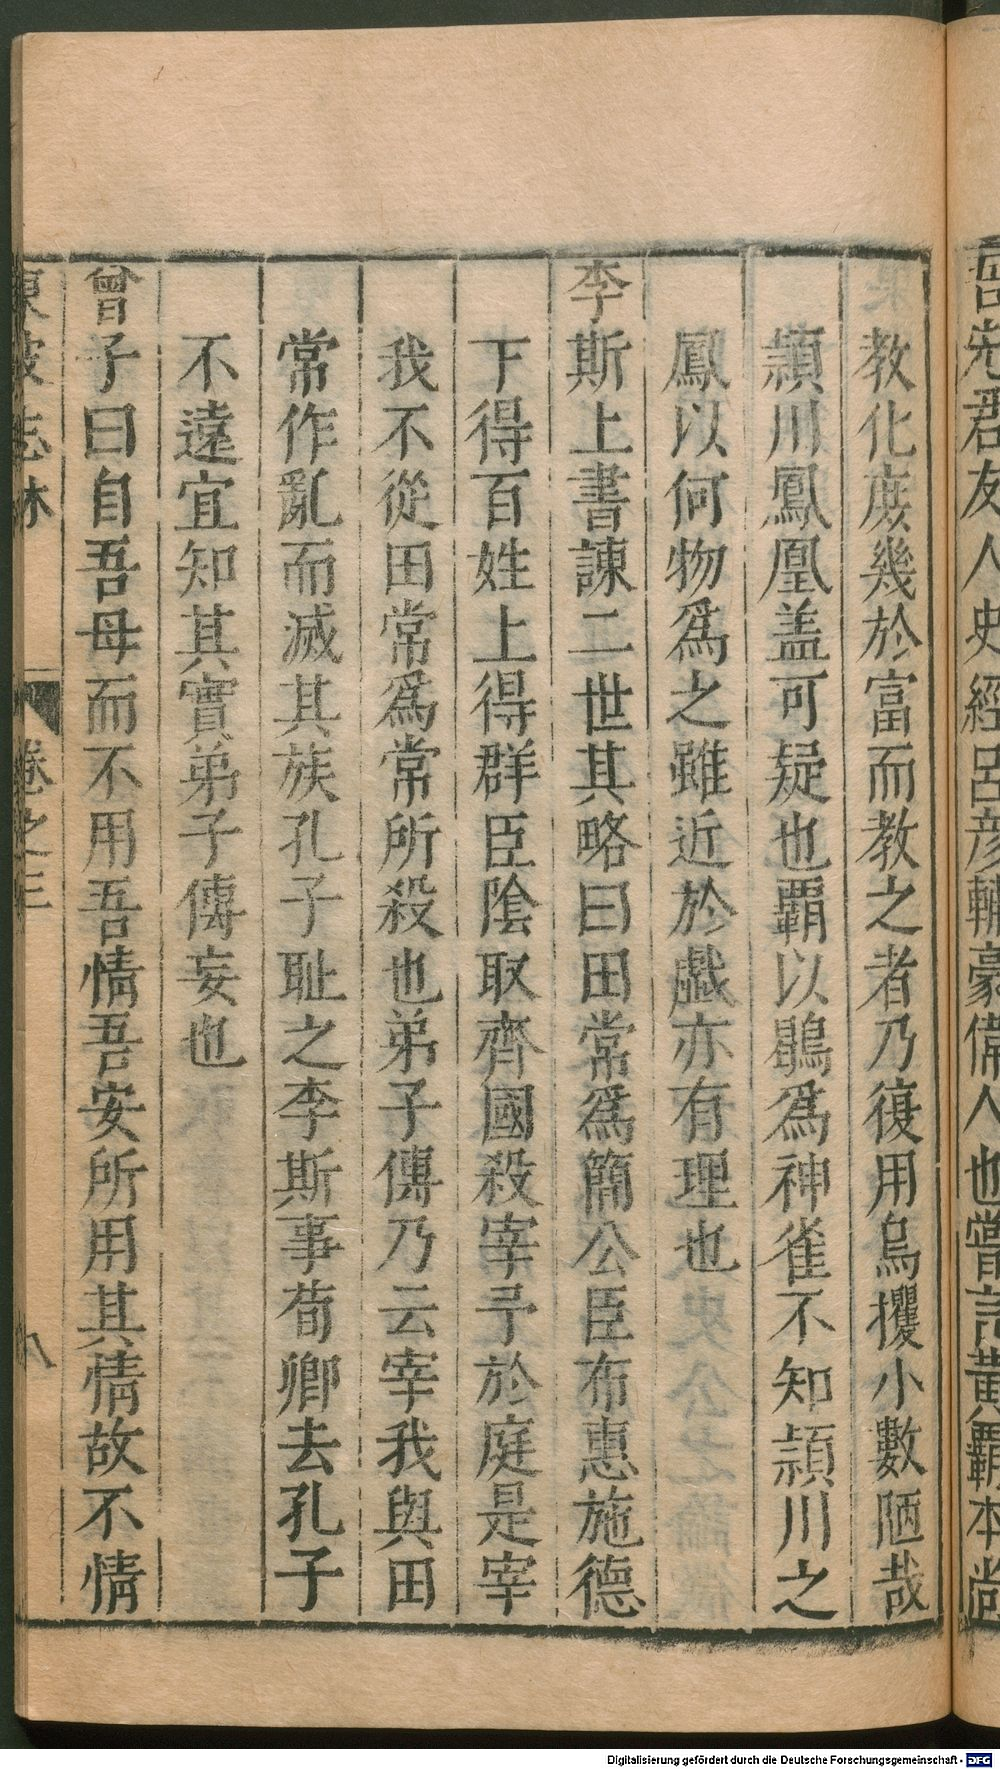 吾先君友人史經臣彦輔豪偉人也嘗言黄覇本尚
教化庻幾於富而教之者乃復用烏攫小數陋哉
頴川鳳凰盖可疑也覇以鶡爲神雀不知頴川之
鳳以何物爲之雖近於戯亦有理也
李斯上書諌二世其略曰田常爲簡公臣布惠施德
下得百姓上得群臣陰取齊國殺宰予於庭是宰
我不從田常爲常所殺也弟子傳乃云宰我與田
常作亂而滅其族孔子耻之李斯事荀卿去孔子
不遠宜知其實弟子傳妄也
曾子曰自吾母而不用吾情吾安所用其情故不情
東坡志林 卷之三 八
Digitalisierung gefördert durch die Deutsche Forschungsgemeinschaft - DFG